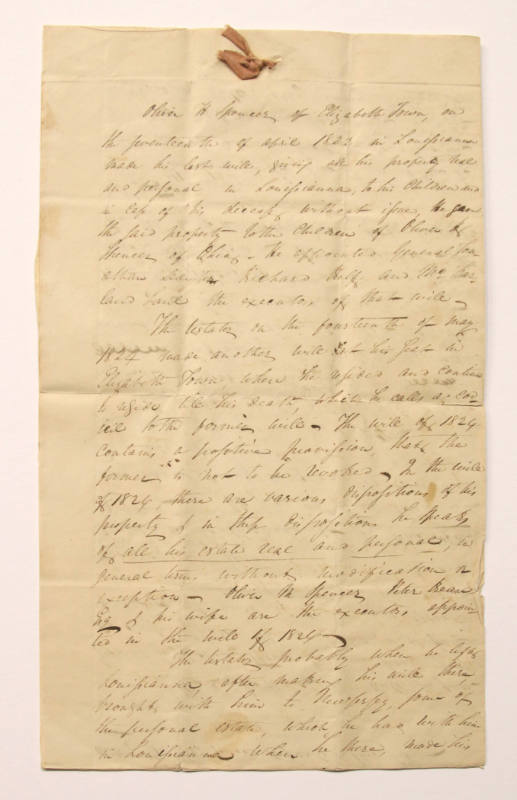 Oliver H Spencer, of Elizabeth Town, on
the seventeenth of april 1823 in Louissianna
made his last will, giving all his property real
and personal in Louissianna, to his Children and
in case of his decease without issue, he gave
the said property to the Children of Oliver
Spencer of Ohio, - He appointed General Jon
athan Richard Relf and
the executors of that will -
The testator on the fourteenth of may
1824 made another will at his seat in
Elizabeth Town where he resided and continued
to reside till his death, which he calls a cod
icil to the former will - The will of 1824
contains a positive provission, that the
former is not to be revoked - In the will
of 1824 there are various dispositions of his
property & in these dispositions he speaks
of all his estate real and personal, in
general terms without modification or
exception - Oliver M Spencer Peter
Esq & his wife are the executors appoin
ted in the will of 1824 -
The testator probably when he left
Louissianna after making his will there
brought with him to Newjersey some of
the personal estate, which he had with him
in Louissianna when he there, made his